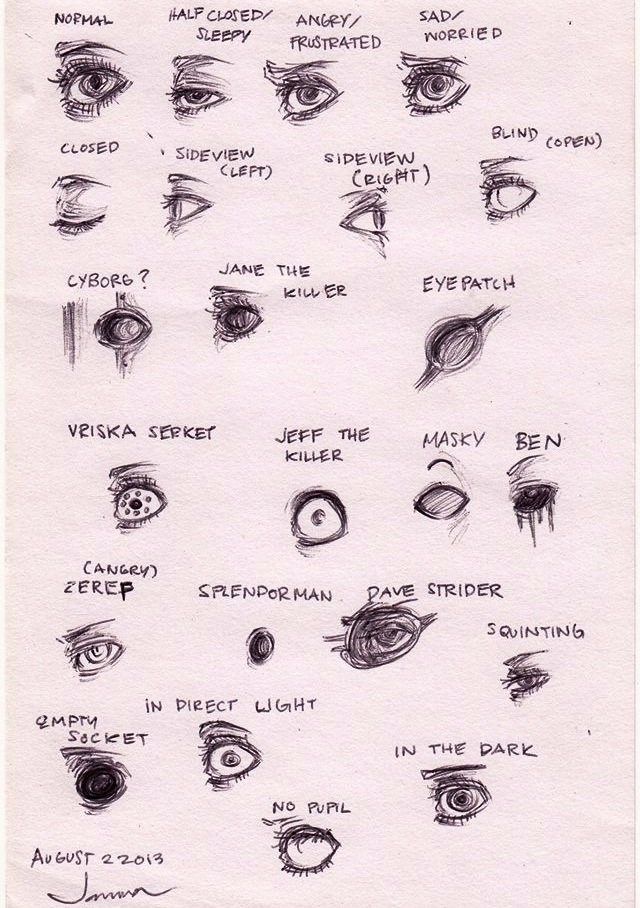 NORMAL
HALF CLOSED/
SLEEPY
ANGRY/
FRUSTRATED
SAD/
WORRIED
CLOSED
SIDEVIEW
(LEFT)
SIDEVIEW
(RIGHT)
BLIND (OPEN)
CYBORG?
JANE THE
KILLER
EYEPATCH
VRISKA SERKET
JEFF THE
KILLER
MASKY
BEN
(ANGRY)
ZEREF
SPLENDORMAN
DAVE STRIDER
SQUINTING
EMPTY
SOCKET
IN DIRECT LIGHT
IN THE DARK
NO PUPIL
AUGUST 2 2013